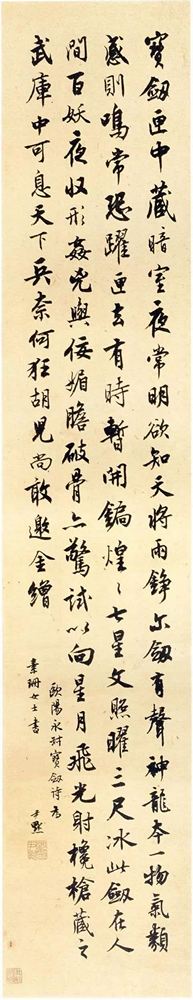 寶劔匣中藏暗室夜常明欲知天將雨錚尓劔有聲神龍本一物氣類
感則鳴常恐躍匣去有時暫開扃煌〻七星文照曜三尺冰此劔在人
間百妖夜収形姦兇與佞媚膽破骨亦驚試以向星月飛光射欃槍藏之
武庫中可息天下兵奈何狂胡兒尚敢邀金繒
歐陽永叔寶劔詩為
珊女士書
尹默